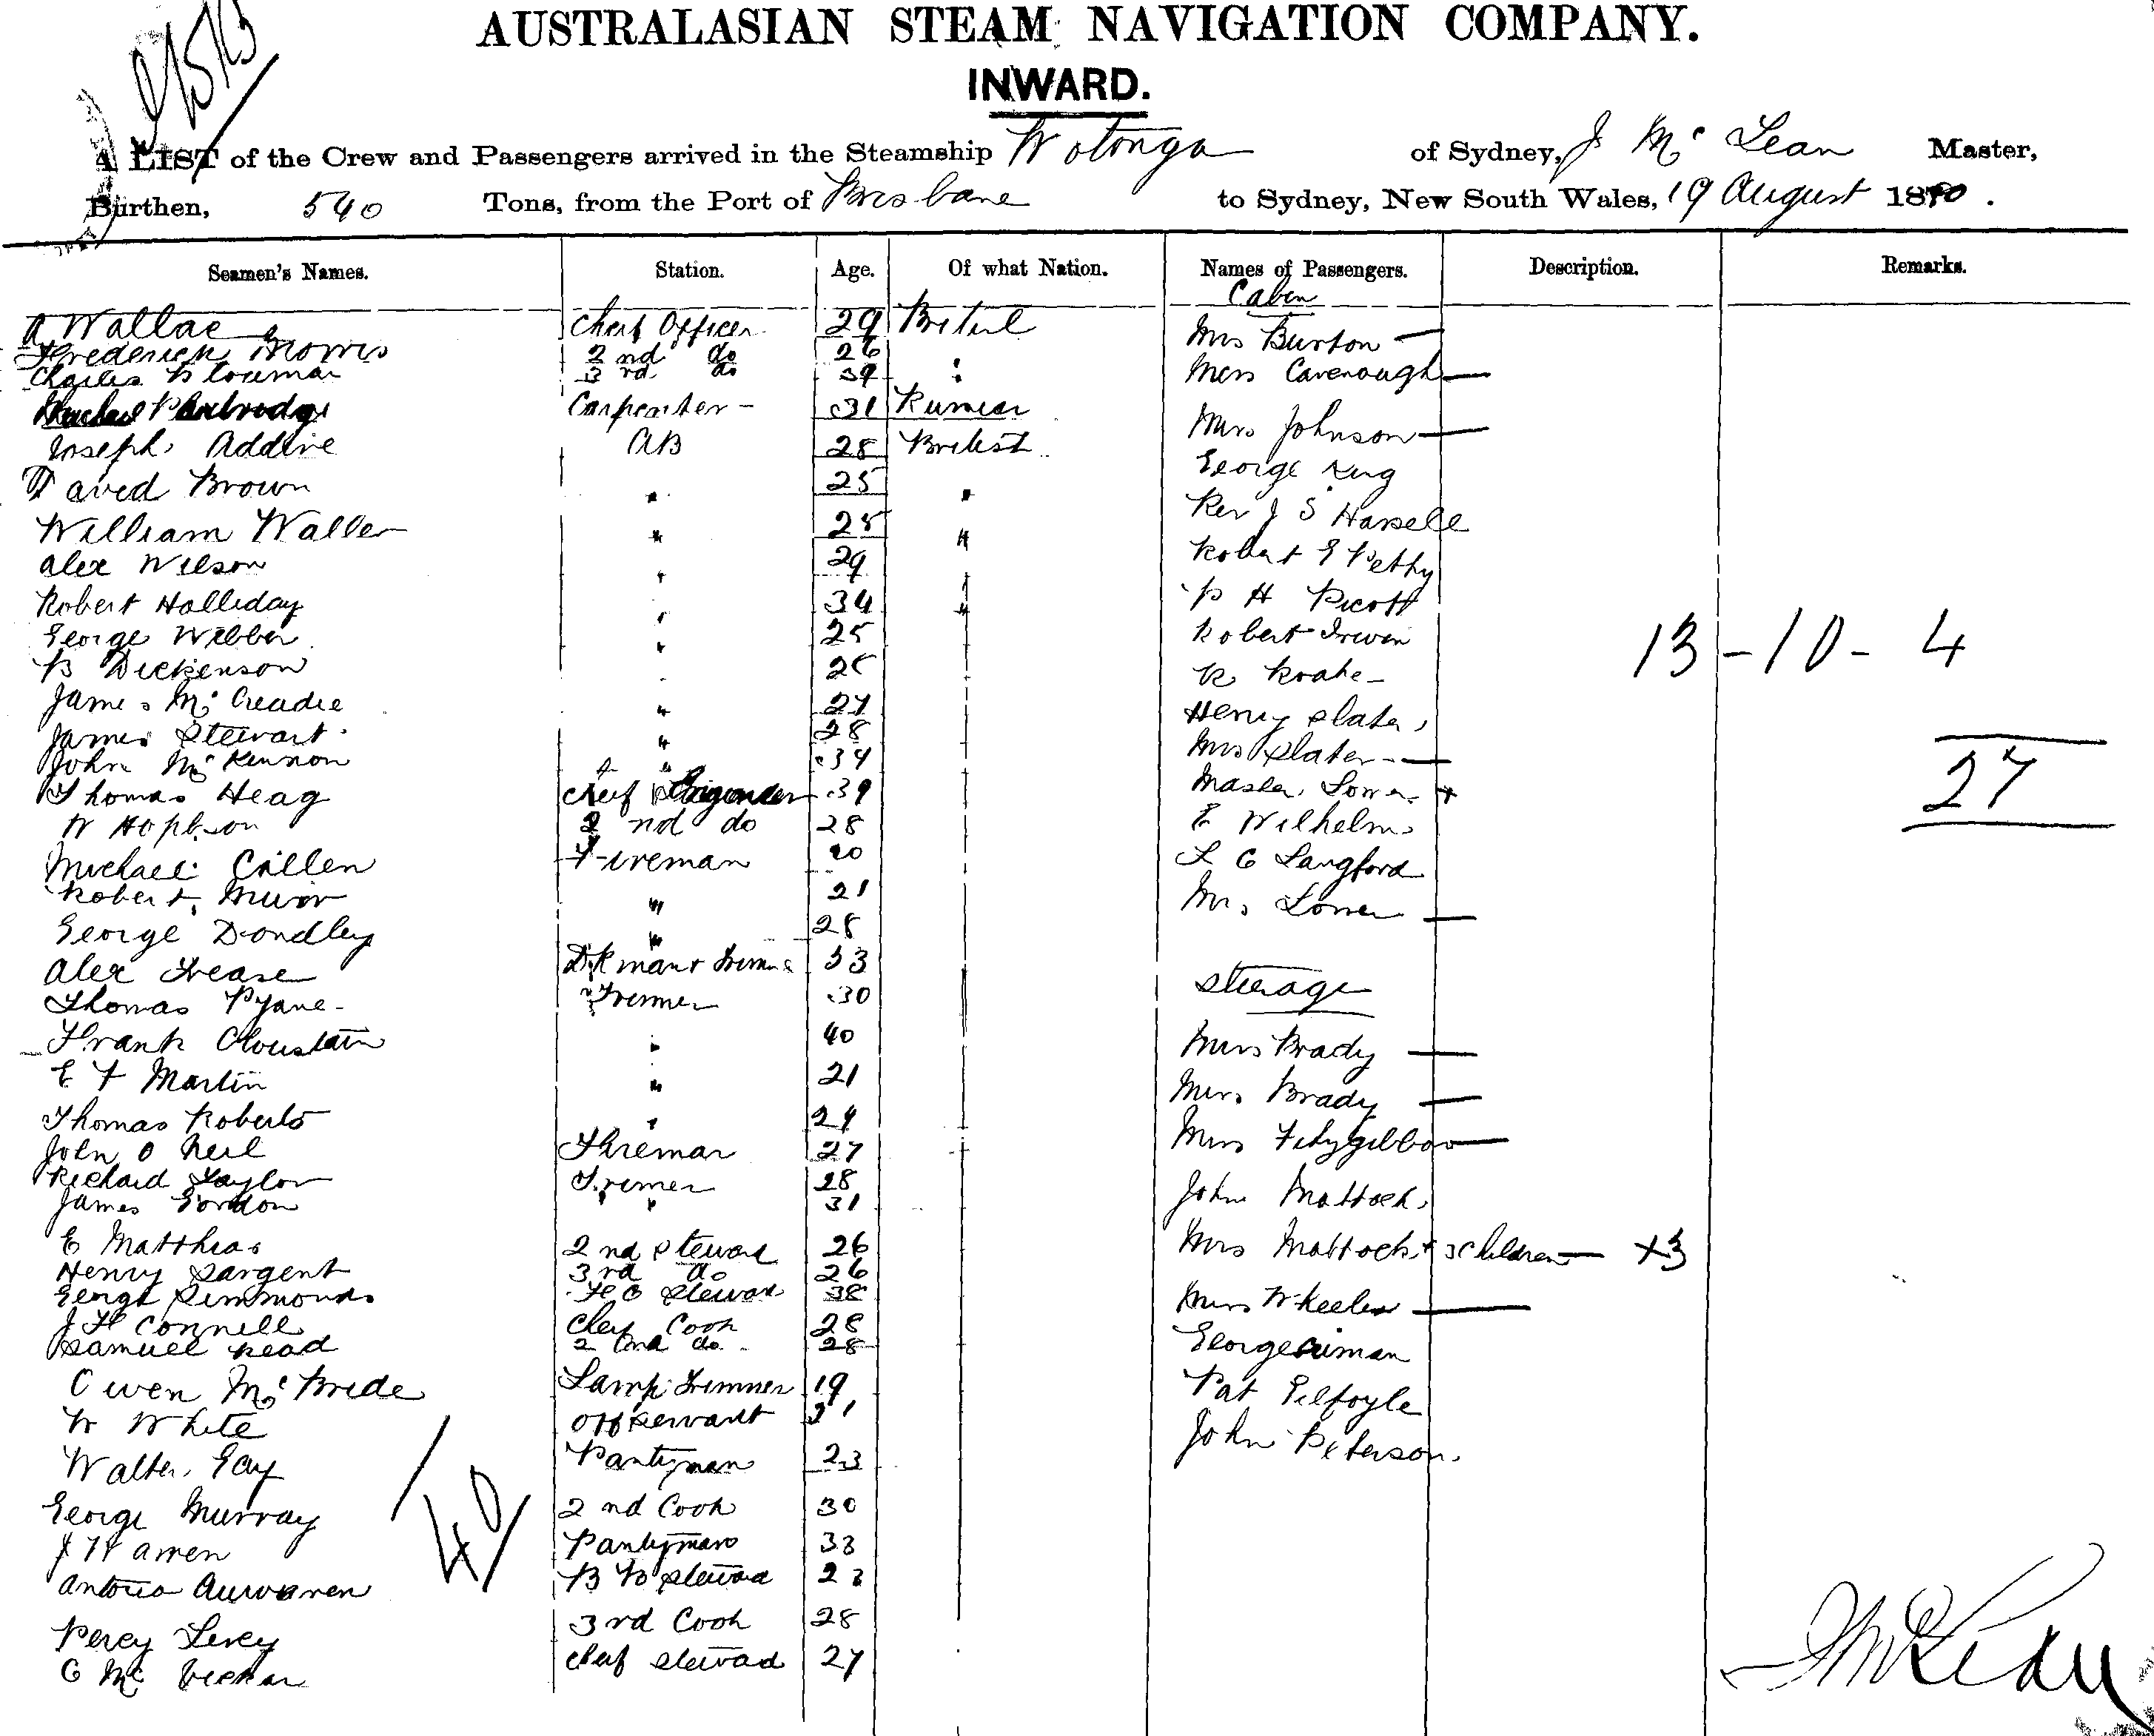 AUSTRALASIAN STEAM NAVIGATION COMPANY.
INWARD.
A LIST of the Crew and Passengers arrived in the Steamship Wotonga of Sydney, J McLean Master,
Burthen, 540 Tons, from the Port of Brisbane to Sydney, New South Wales, 19 August 1880.
Seamen's Names. Station. Age. Of what Nation. Names of Passengers. Description. Remarks.
Cabin
A Wallace Chief Officer 29 Mrs Burton —
Frederick Morris 2nd do 26
Charles 3rd do 39 Miss Cavenough —
Carpenter - 31
Joseph Addive AB 28 British Mrs Johnson —
David Brown " 25 " George King
William Waller " 25 " Rev J S Hassell
Alex Wilson " 29 " Robert E Petty
Robert Halliday " 34 " P H Picott
George Webber " 25 Robert Irwin
B Dickenson " R Roahe -
James McCreadie " 27 Henry Slater
James Stewart " 28 Mrs Slater —
John McKinnon " 34 Master Lower +
Thomas Heag Chief Engineer 39 E Wilhelms
W Hopson 2nd do 28 L G Langford
Michael Cullen Fireman 20 Mrs Lower —
Robert Muir " 21
George Dondley " 28
Alex Frease 33 Steerage
Thomas Pyane - Trimmer 30
Frank Cloustain " 40 Miss Brady —
E F Martin " 21 Mrs Brady —
Thomas Roberts " 24 Miss Fitzgibbon —
John O Neil Fireman 27
Richard Taylor Trimmer 28 John Mattock
James Gordon " 31
E Matthias 2nd Steward 26 Mrs Mattock + 3 Children — +3
Henry Sargent 3rd do 26
George Simmonds F C Steward 38 Miss Wheeler —
J H Connell Chief Cook 28
Samuel Read 2nd do 28 George
Owen McBride Lamp Trimmer 19 Pat Gilfoyle
W White Off Servant 21
Walter Gay Pantryman 23 John Peterson.
George Murray 2nd Cook 30
J Warren Pantryman 33
Antonio B Steward
Percy Levey 3rd Cook 28
C Mc Chief Steward 27
40
13 - 10 - 4
27
J McLean